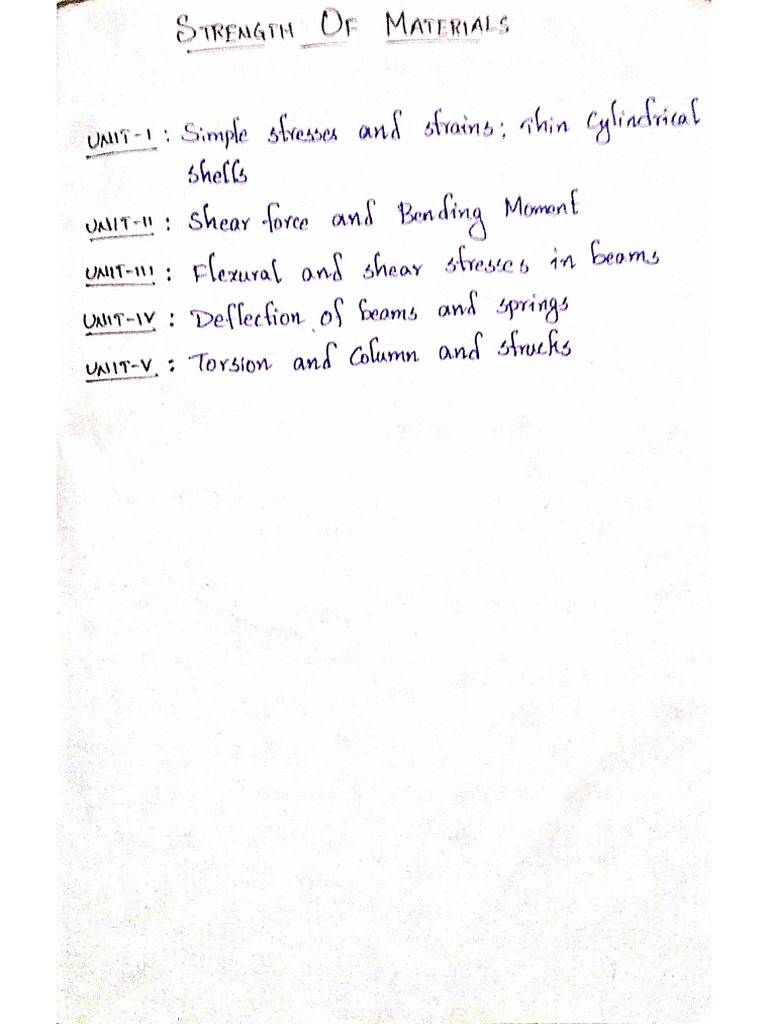 STRENGTH OF MATERIALS
UNIT-I : Simple stresses and strains; thin Cylindrical
shells
UNIT-II : Shear force and Bending Moment
UNIT-III : Flexural and shear stresses in beams
UNIT-IV : Deflection of beams and springs
UNIT-V : Torsion and Column and strucks